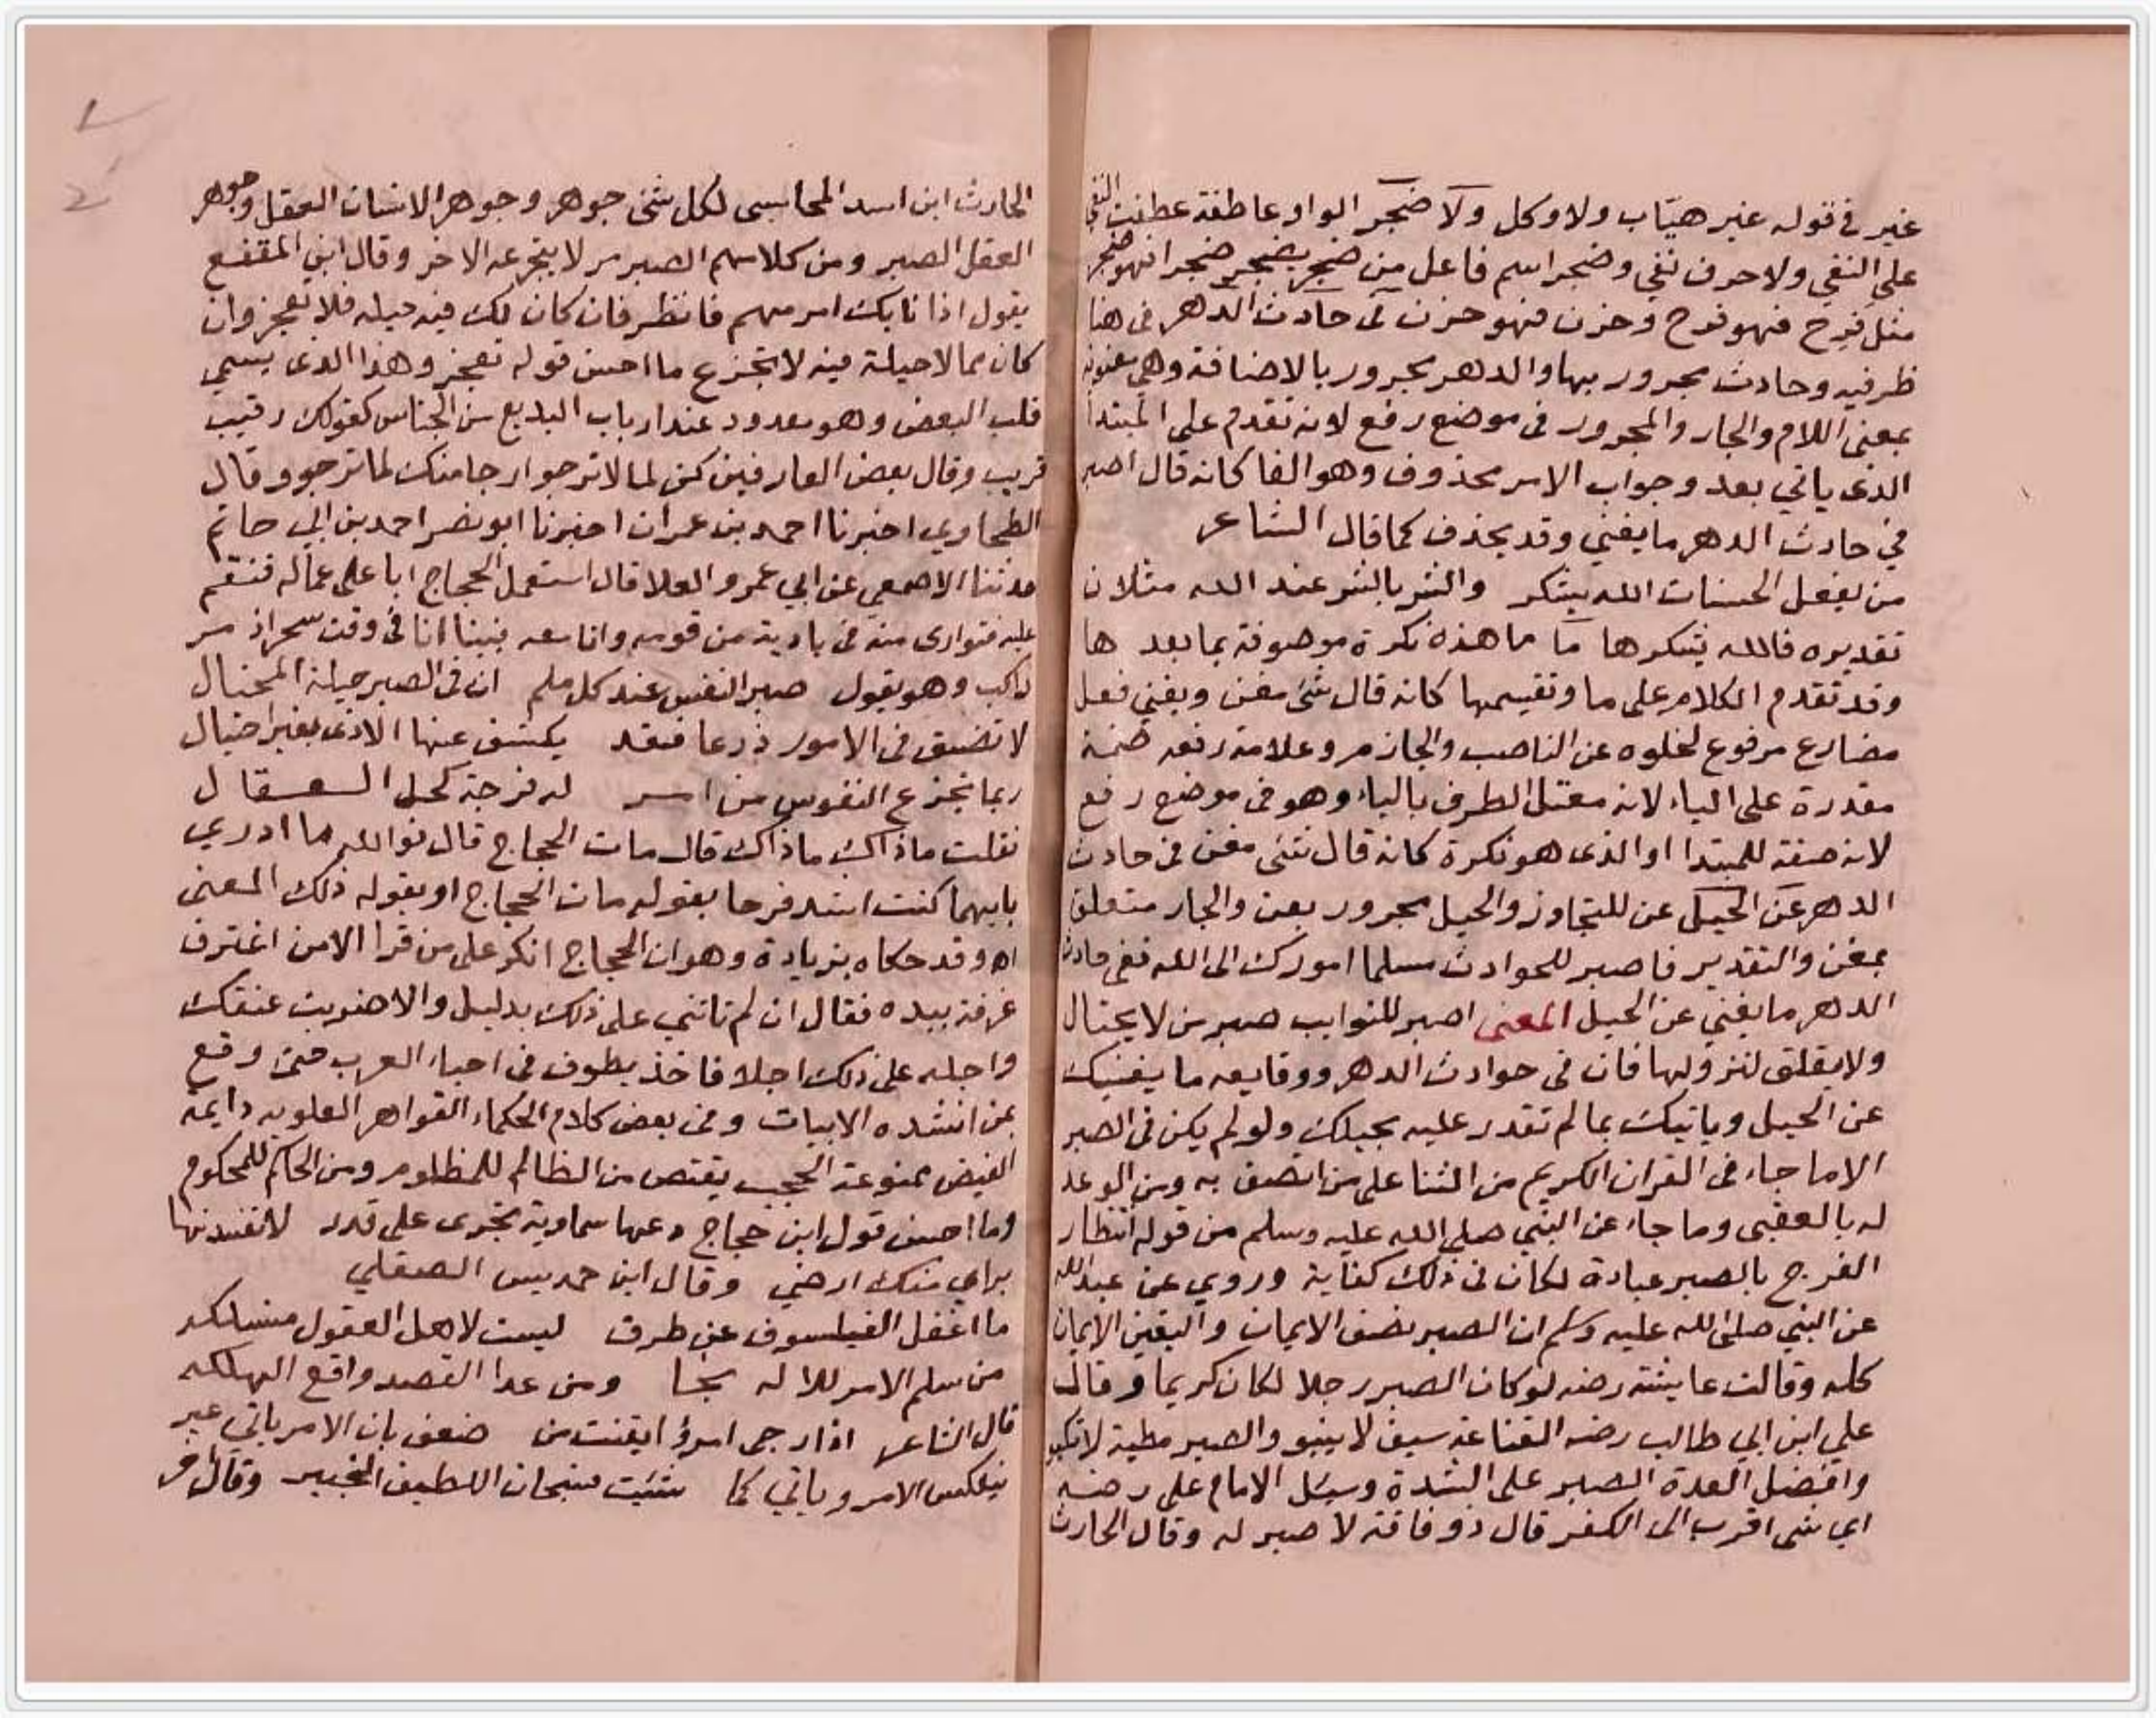 غير في قوله غير هيّاب ولا وكل ولا ضجر الواو عاطفة عطفت النفي
على النفي ولا حرف نفي وضجر اسم فاعل من ضجر يضجر ضجرا فهو ضجر
مثل فرح فهو فرح وحزن فهو حزن في حادث الدهر في هنا
ظرفيه وحادث مجرور بها والدهر مجرور بالاضافة وهي معنوية
بمعنى اللام والجار والمجرور في موضع رفع لانه تقدم على المبتدا
الذى ياتي بعد وجواب الامر محذوف وهو الفا كانه قال اصبر
في حادث الدهر ما يغني وقد يحذف كما قال الشاعر
من يفعل الحسنات الله يشكر والشر بالشر عند الله مثلان
تقديره فالله يشكرها ما ما هذه نكرة موصوفة بما بعد ها
وقد تقدم الكلام على ما وتقسيمها كانه قال شئ مغن ويغني فعل
مضارع مرفوع لخلوه عن الناصب والجازم وعلامة رفعه ضمة
مقدرة على الياء لانه معتل الطرف بالياء وهو في موضع رفع
لانه صفة للمبتدا او الذى هو نكرة كانه قال شئى مغن في حادث
الدهر عن الحيل عن للتجاوز والحيل مجرور بعن والجار متعلق
بمغن والتقدير فاصبر للحوادث مسلما امورك الى الله ففي حادث
الدهر ما يغني عن الحيل المعنى اصبر للنوايب صبر من لا يحتال
ولا يقلق لنزولها فان في حوادث الدهر ووقايعه ما يغنيك
عن الحيل وياتيك بما لم تقدر عليه بحيلك ولو لم يكن في الصبر
الا ما جاء في القران الكريم من الثنا على من اتصف به ومن الوعد
له بالعقبى وما جاء عن النبي صلى الله عليه وسلم من قوله انتظار
الفرج بالصبر عبادة لكان في ذلك كفاية وروي عن عبد الله
عن النبي صلى الله عليه وسلم ان الصبر نصف الايمان واليقين الايمان
كله وقالت عايشة رضه لو كان الصبر رجلا لكان كريما وقال
علي ابن ابي طالب رضه القناعة سيف لا ينبو والصبر مطية لا تكبو
وافضل العدة الصبر على الشدة وسئل الامام على رضه
اي شى اقرب الى الكفر قال ذو فاقة لا صبر له وقال الحارث
الحارث ابن اسد المحاسبى لكل شئ جوهر وجوهر الانسان العقل وجوهر
العقل الصبر ومن كلامهم الصبر مر لا يتجرعه الا حر وقال ابن المقفع
يقول اذا نابك امر مهم فانظر فان كان لك فيه حيله فلا تعجز وان
كان مما لا حيلة فيه لا تجزع ما احسن قوله تعجز وهذا الذى يسمي
قلب البعض وهو معدود عند ارباب البديع من الجناس كقولك رقيب
قريب وقال بعض العارفين كن لما لا ترجو ارجا منك لما ترجو وقال
الطحاوي اخبرنا احمد بن عمران اخبرنا ابو نصر احمد بن ابي حاتم
حدثنا الاصمعي عن ابي عمرو العلا قال استعمل الحجاج ابا على عماله فنقم
عليه فتوارى منه في بادية من قومه وانا معه فبينا انا في وقت سحر اذ مر
راكب وهو يقول صبر النفس عند كل ملم ان في الصبر حيلة المحتال
لا تضيق في الامور ذرعا فقد يكشف عنها الاذى بغير احتيال
ربما تجزع النفوس من امر له فرجة كحل العقال
فقلت ماذاك ماذاك قال مات الحجاج قال فوالله ما ادري
بايهما كنت اشد فرحا بقوله مات الحجاج او بقوله ذلك المعنى
اه وقد حكاه بزيادة وهو ان الحجاج انكر على من قرا الا من اغترف
غرفة بيده فقال ان لم تاتني على ذلك بدليل والا ضربت عنقك
واجله على ذلك اجلا فاخذ يطوف في احياء العرب حتى وقع
بمن انشده الابيات وفي بعض كلام الحكماء القواهر العلويه دايمة
الفيض ممنوعة الحجب يقتص من الظالم للمظلوم ومن الحاكم للمحكوم
وما احسن قول ابن حجاج دعها سماوية تجرى على قدر لا تفسدنها
براي منك ارضي وقال ابن حمديس الصقلي
ما اغفل الفيلسوف عن طرق ليست لاهل العقول منسلكه
من سلم الامر للاله نجا ومن عدا القصد واقع الهلكه
قال الشاعر اذا رجى امرؤ ايقنت من ضعف بان الامر ياتي غير
ينعكس الامر وياتي كما شئيت سبحان اللطيف الخبير وقال مر